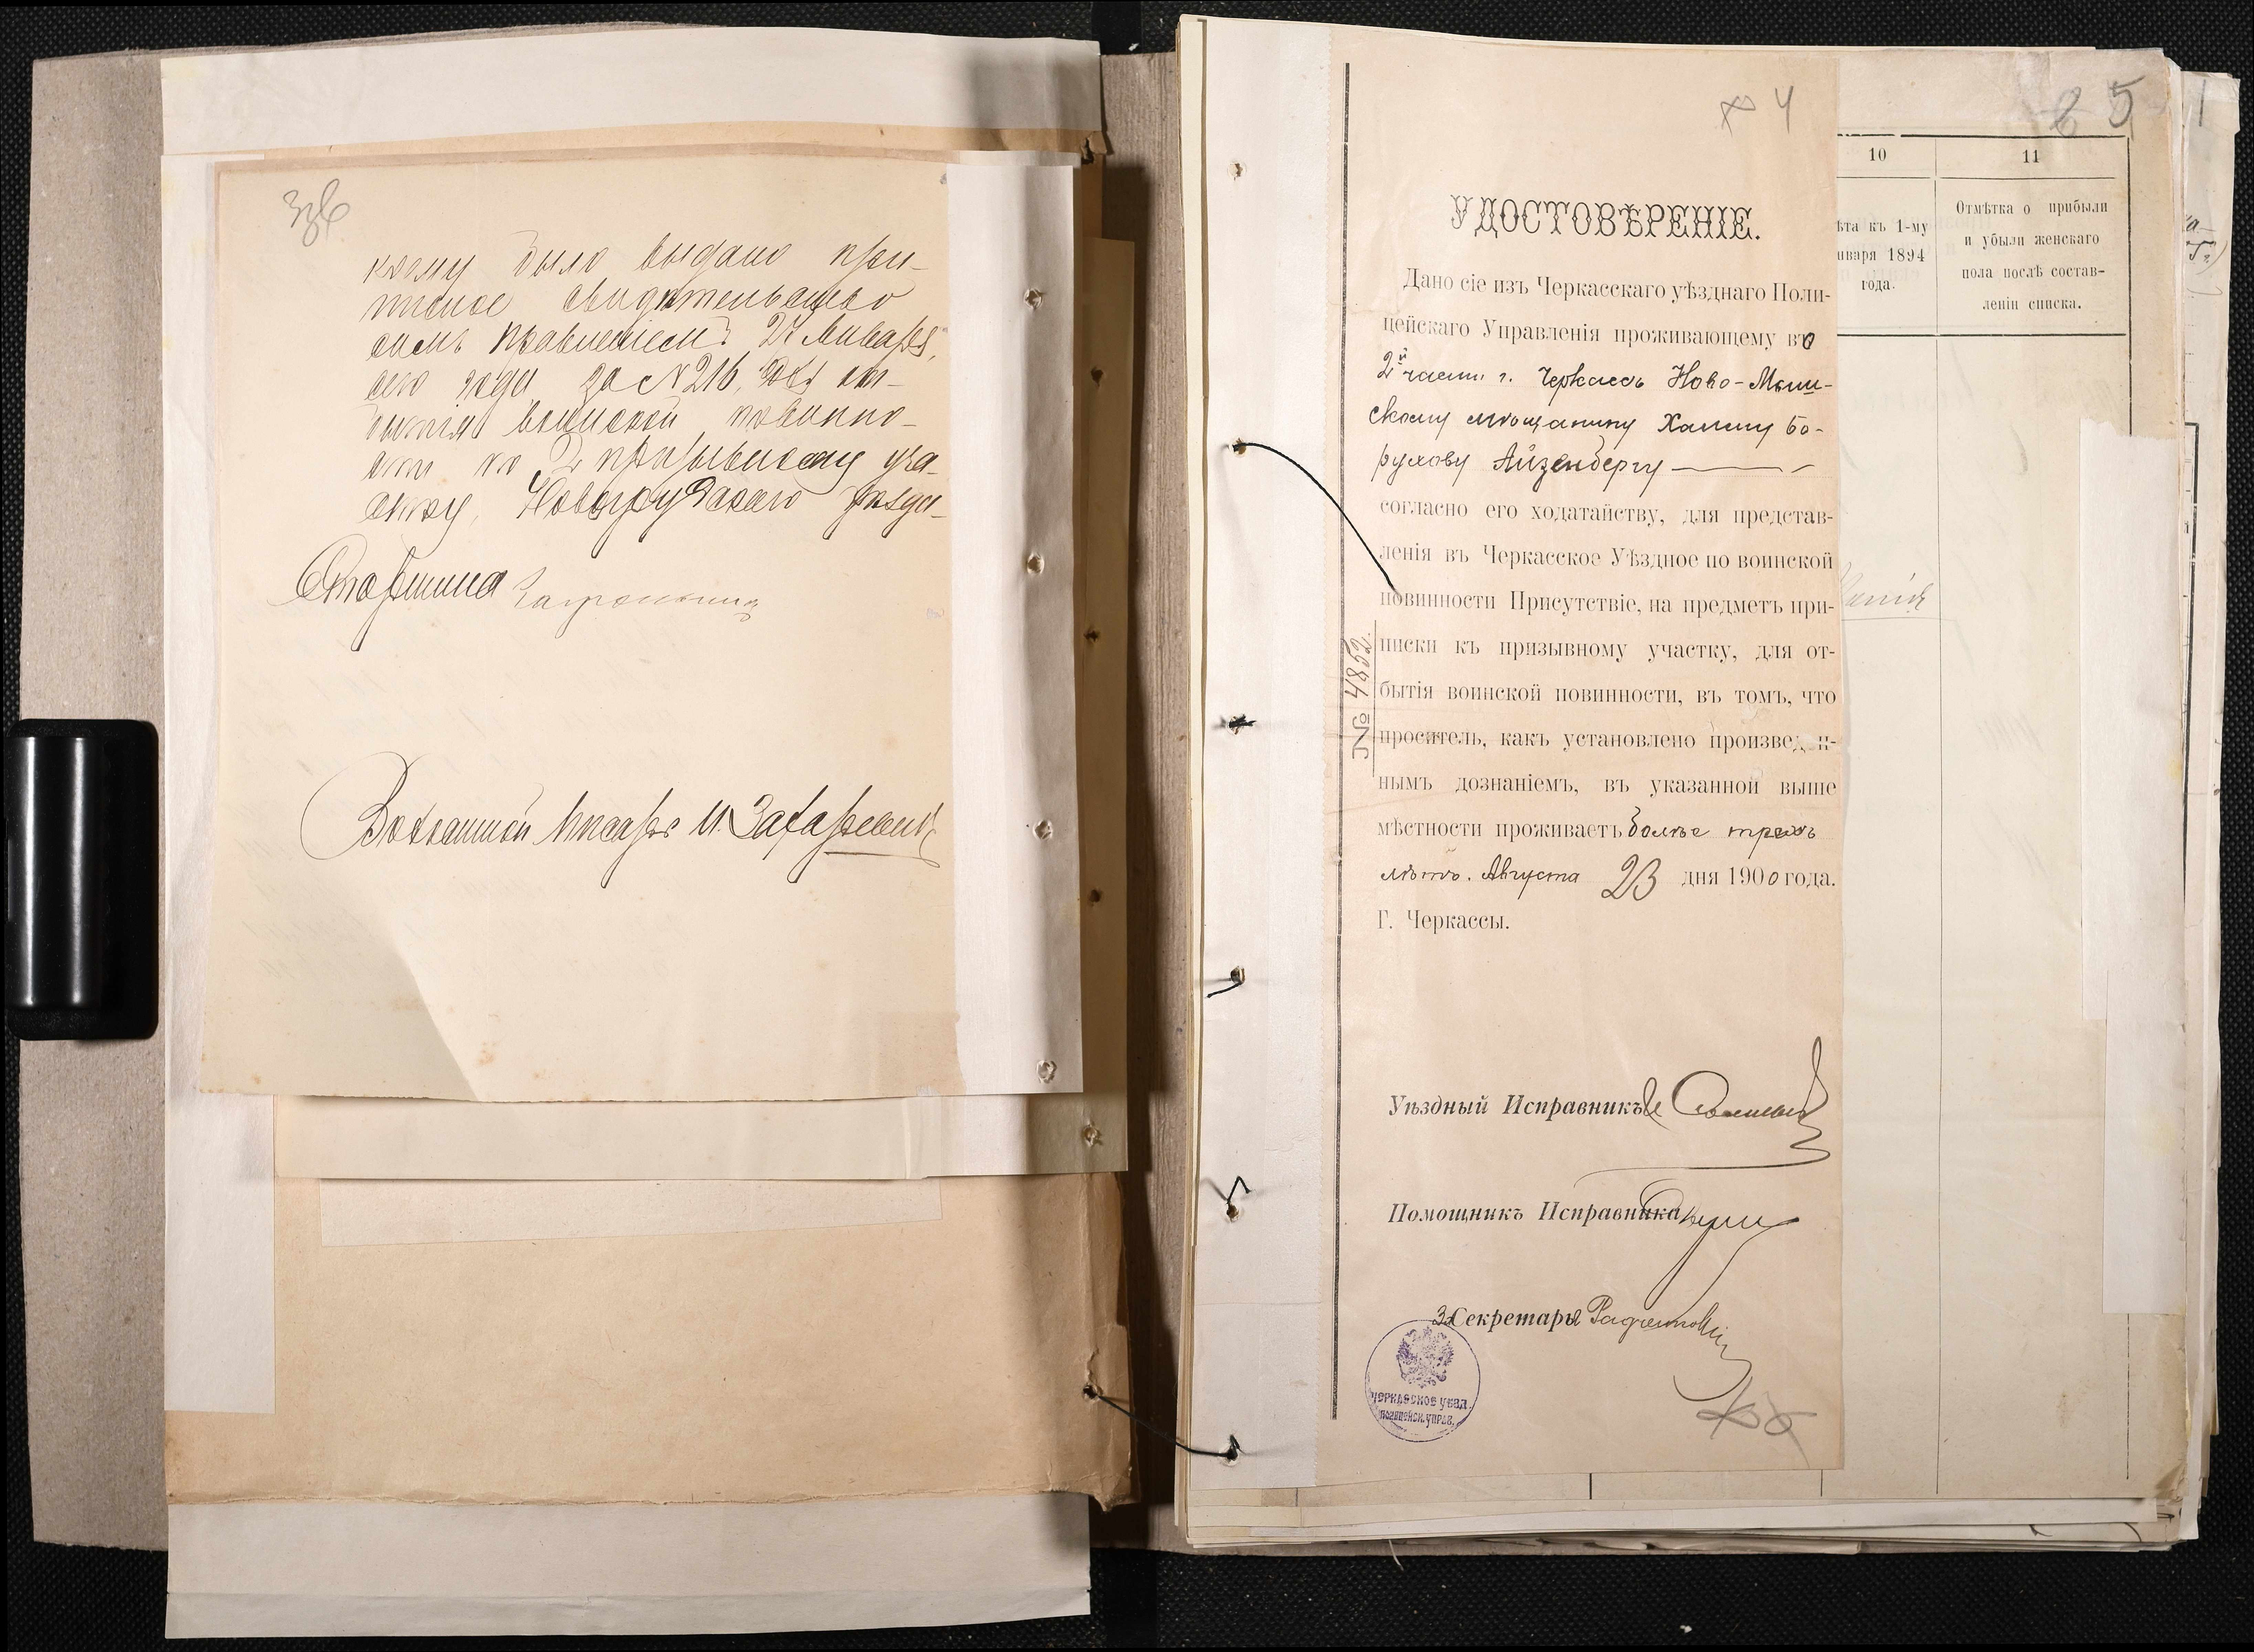 кому было выдано при-
писное свидетельство
симъ Правленіемъ 27 Января,
сего года за № 216, для от-
бытія воинской повинно-
сти по 2 призывному уча-
стку, Новогрудскаго уѣзда
Старшина
Волостной Писарь И. Захаревичъ
4
5
10
11
ѣта къ 1-му
нваря 1894
года.
Отмѣтка о прибыли
и убыли женскаго
пола послѣ состав-
леніи списка.
УДОСТОВѢРЕНІЕ.
Дано сіе изъ Черкасскаго уѣзднаго Поли-
цейскаго Управленія проживающему во
2й части г. Черкассъ Ново-Мыш-
скому мѣщанину Хаиму Бо-
рухову Айзенбергу
согласно его ходатайству, для представ-
ленія въ Черкасское Уѣздное по воинской
повинности Присутствіе, на предметъ при-
писки къ призывному участку, для от-
бытія воинской повинности, въ томъ, что
проситель, какъ установлено произвед н-
нымъ дознаніемъ, въ указанной выше
мѣстности проживаетъ болѣе трехъ
лѣтъ. Августа 23 дня 1900 года.
Г. Черкассы.
№ 4852.
Уѣздный Исправникъ
Помощникъ Исправника
За Секретаря
ЧЕРКАССКОЕ УѢЗД.
ПОЛИЦЕЙСК. УПРАВ.